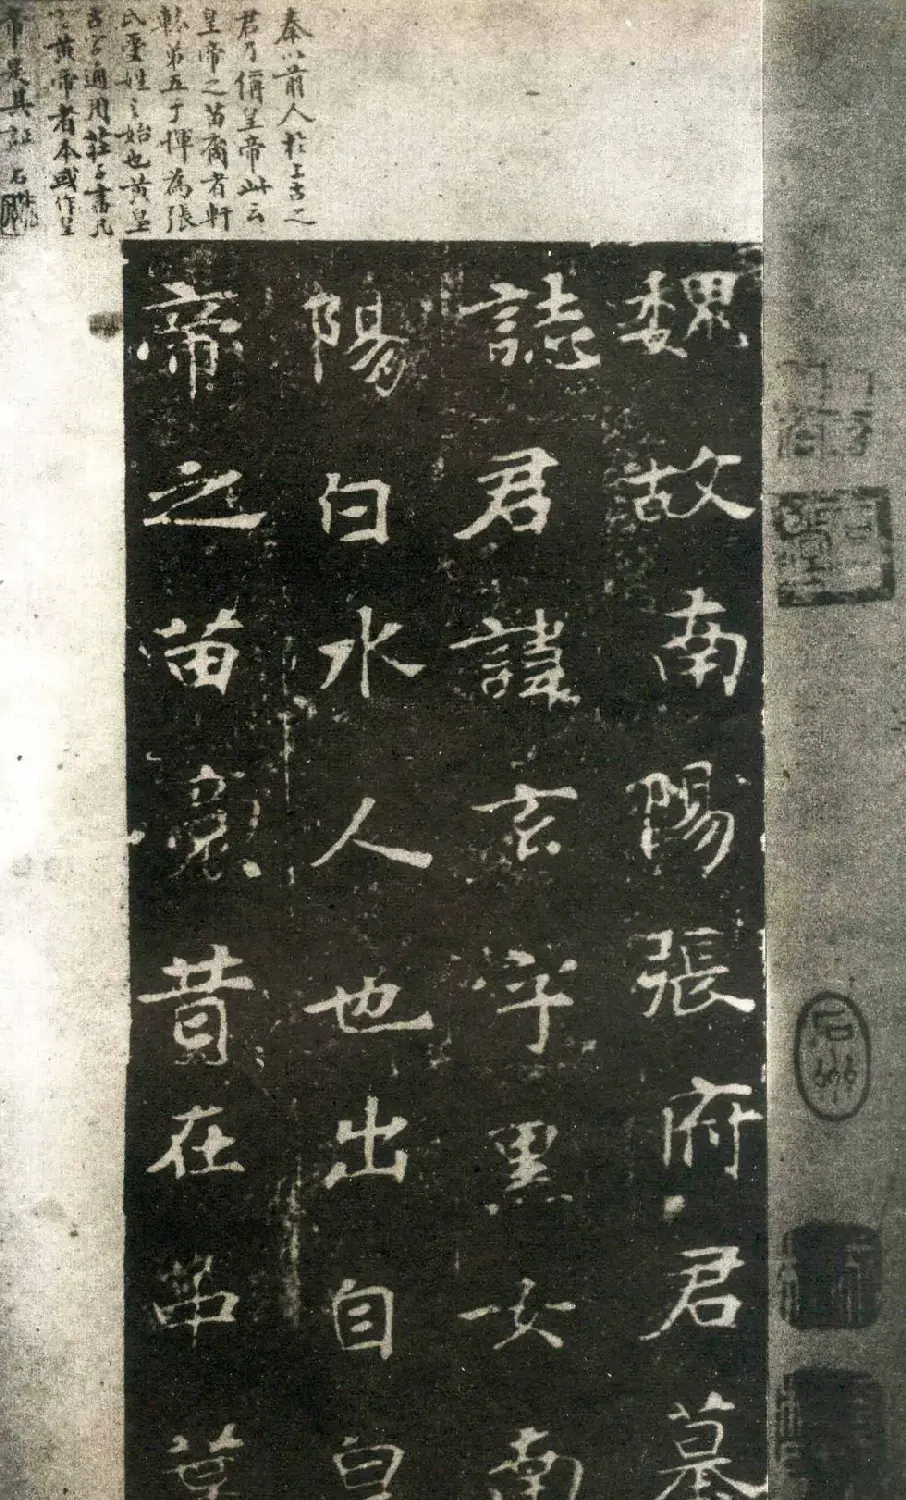 魏故南陽張府君墓
誌君諱玄字黑女南
陽白水人也出自皇
帝之苗裔昔在中葉
秦以前人於上古之
君乃偁皇帝此云
皇帝之苗裔者軒
轅弟五子揮為張
氏受姓之始也黃皇
古字通用莊子書凡
黃帝者本或作皇
帝是其証